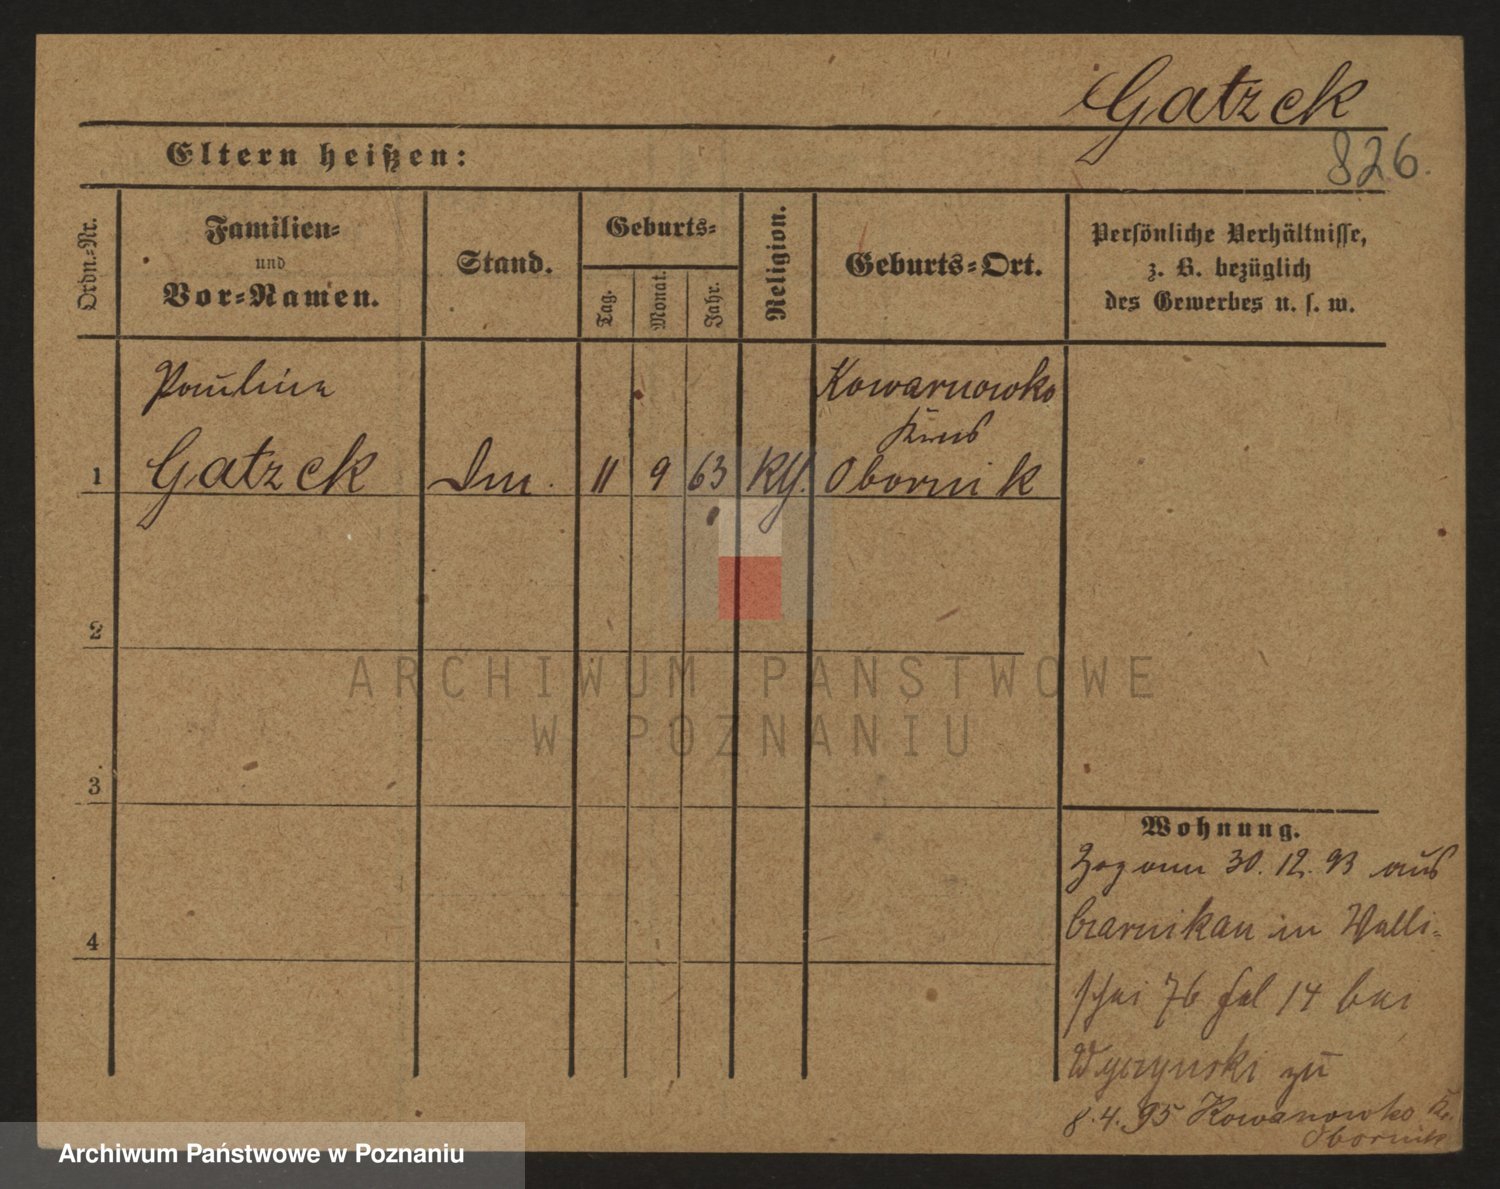 Gatzek
826.
Eltern heißen:
Ordn.=Nr.
Familien=
und
Vor=Namen.
Stand.
Geburts=
Tag.
Monat.
Jahr.
Religion.
Geburts=Ort.
Persönliche Verhältnisse,
z. B. bezüglich
des Gewerbes u. s. w.
Pauline
Kowarnowko
Kreis
1 Gatzek 11 9 63 Obornik
2
3
4
Wohnung.
Zog am 30. 12. 93 aus
Czarnikau in Walli=
schei 76 14 bei
zu
8. 4. 95 Kowanowko Kr.
Obornik
ARCHIWUM PAŃSTWOWE
W POZNANIU
Archiwum Państwowe w Poznaniu